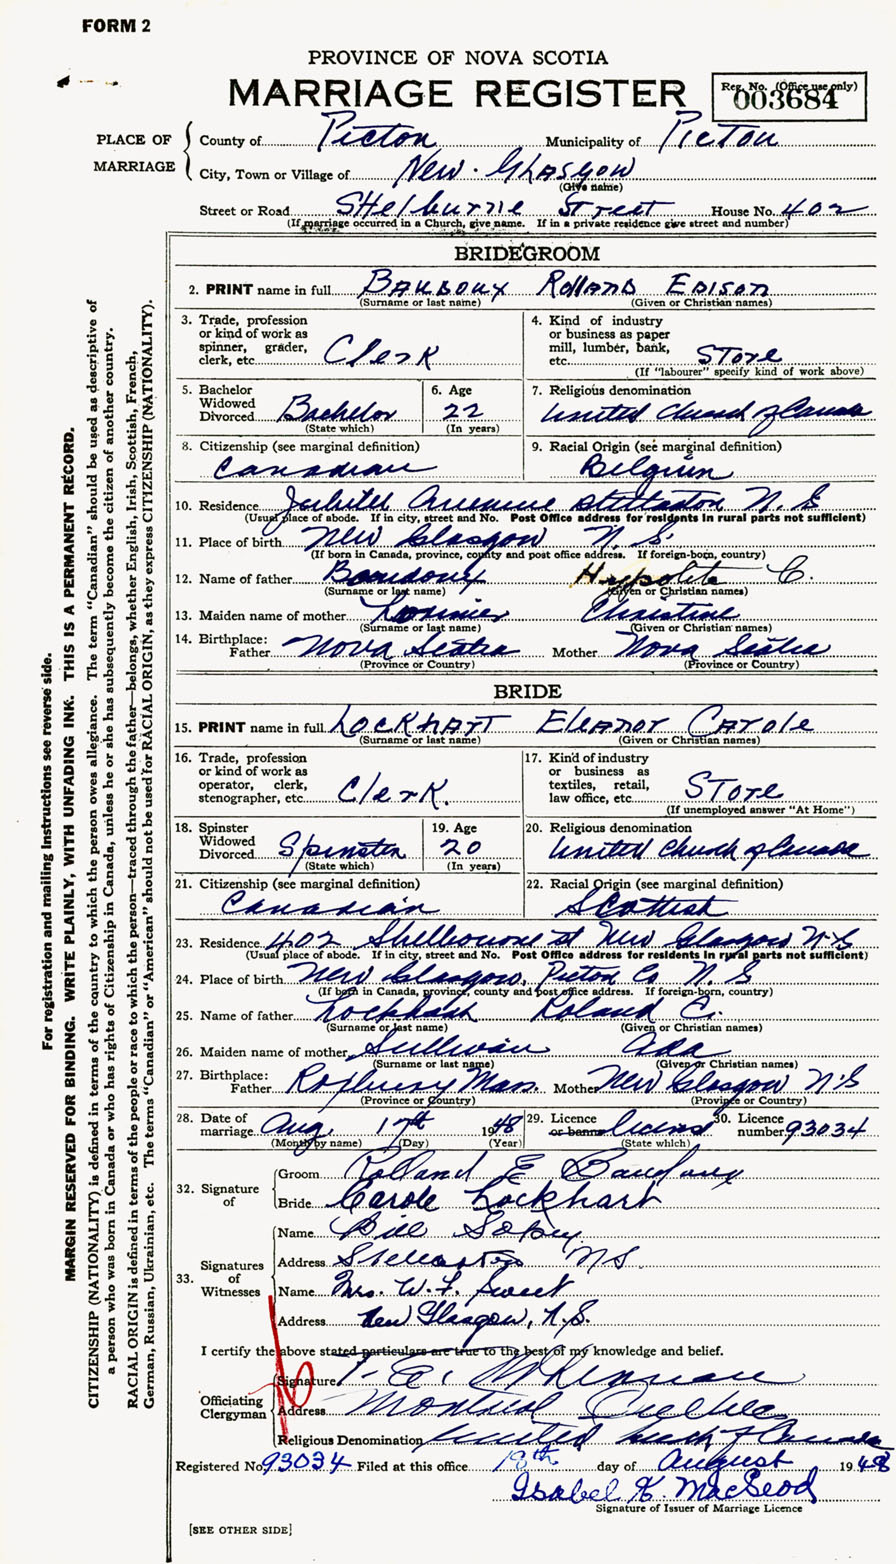 FORM 2
PROVINCE OF NOVA SCOTIA
MARRIAGE REGISTER
Reg. No. (Office use only)
003684
PLACE OF MARRIAGE
County of Picton Municipality of Picton
City, Town or Village of New Glasgow
(Give name)
Street or Road Shelburne Street House No. 402
(If marriage occurred in a Church, give name. If in a private residence give street and number)
BRIDEGROOM
2. PRINT name in full Baudoux Rolland Edison
(Surname or last name) (Given or Christian names)
3. Trade, profession or kind of work as spinner, grader, clerk, etc. Clerk
4. Kind of industry or business as paper mill, lumber, bank, etc. Store
(If "labourer" specify kind of work above)
5. Bachelor Widowed Divorced Bachelor
(State which)
6. Age 22
(In years)
7. Religious denomination United Church of Canada
8. Citizenship (see marginal definition) Canadian
9. Racial Origin (see marginal definition) Belgium
10. Residence Stellarton N. S
(Usual place of abode. If in city, street and No. Post Office address for residents in rural parts not sufficient)
11. Place of birth New Glasgow N. S.
(If born in Canada, province, county and post office address. If foreign-born, country)
12. Name of father Baudoux Hypolite C.
(Surname or last name) (Given or Christian names)
13. Maiden name of mother Christine
(Surname or last name) (Given or Christian names)
14. Birthplace:
Father Nova Scotia Mother Nova Scotia
(Province or Country) (Province or Country)
BRIDE
15. PRINT name in full Lockhart Eleanor Carole
(Surname or last name) (Given or Christian names)
16. Trade, profession or kind of work as operator, clerk, stenographer, etc. Clerk.
17. Kind of industry or business as textiles, retail, law office, etc. Store
(If unemployed answer "At Home")
18. Spinster Widowed Divorced Spinster
(State which)
19. Age 20
(In years)
20. Religious denomination United Church of Canada
21. Citizenship (see marginal definition) Canadian
22. Racial Origin (see marginal definition) Scottish
23. Residence 402 Shelbourne st New Glasgow N-S
(Usual place of abode. If in city, street and No. Post Office address for residents in rural parts not sufficient)
24. Place of birth New Glasgow, Picton Co N. S
(If born in Canada, province, county and post office address. If foreign-born, country)
25. Name of father Lockhart Roland C.
(Surname or last name) (Given or Christian names)
26. Maiden name of mother Sullivan Ada
(Surname or last name) (Given or Christian names)
27. Birthplace:
Father Roxbury Mass. Mother New Glasgow N S
(Province or Country) (Province or Country)
28. Date of marriage Aug. 17th 1948
(Month by name) (Day) (Year)
29. Licence or banns License
(State which)
30. Licence number 93034
32. Signature of
Groom Rolland E Baudoux
Bride Carole Lockhart
33. Signatures of Witnesses
Name Bill
Address Stellarton NS
Name Mrs. W. F. Sweet
Address New Glasgow, N.S.
I certify the above stated particulars are true to the best of my knowledge and belief.
Officiating Clergyman
Signature
Address Montreal Quebec
Religious Denomination United Church of Canada
Registered No. 93034 Filed at this office 18th day of August 1948
Isabel K. MacLeod
Signature of Issuer of Marriage Licence
[SEE OTHER SIDE]
For registration and mailing instructions see reverse side.
MARGIN RESERVED FOR BINDING. WRITE PLAINLY, WITH UNFADING INK. THIS IS A PERMANENT RECORD.
CITIZENSHIP (NATIONALITY) is defined in terms of the country to which the person owes allegiance. The term "Canadian" should be used as descriptive of
a person who was born in Canada or who has rights of Citizenship in Canada, unless he or she has subsequently become the citizen of another country.
RACIAL ORIGIN is defined in terms of the people or race to which the person—traced through the father—belongs, whether English, Irish, Scottish, French,
German, Russian, Ukrainian, etc. The terms "Canadian" or "American" should not be used for RACIAL ORIGIN, as they express CITIZENSHIP (NATIONALITY).